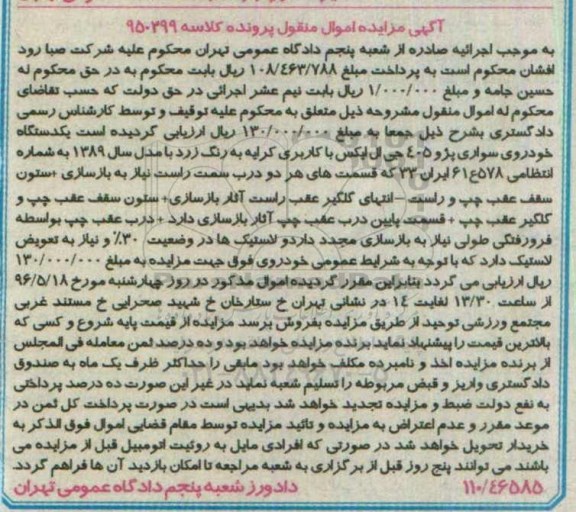 آگهی مزایده اموال منقول پرونده کلاسه ۹۵۰۳۹۹
به موجب اجرائیه صادره از شعبه پنجم دادگاه عمومی تهران محکوم علیه شرکت صبا رود
افشان محکوم است به پرداخت مبلغ ۱۰۸/۴۶۳/۷۸۸ ریال بابت محکوم به در حق محکوم له
حسین جامه و مبلغ ۱/۰۰۰/۰۰۰ ریال بابت نیم عشر اجرائی در حق دولت که حسب تقاضای
محکوم له اموال منقول مشروحه ذیل متعلق به محکوم علیه توقیف و توسط کارشناس رسمی
دادگستری بشرح ذیل جمعا به مبلغ ۱۳۰/۰۰۰/۰۰۰ ریال ارزیابی گردیده است یکدستگاه
خودروی سواری پژو ۴۰۵ جی ال ایکس با کاربری کرایه به رنگ زرد با مدل سال ۱۳۸۹ به شماره
انتظامی ۵۷۸ع۶۱ ایران ۳۳ که قسمت های هر دو درب سمت راست نیاز به بازسازی +ستون
سقف عقب چپ و راست –انتهای گلگیر عقب راست آثار بازسازی+ ستون سقف عقب چپ و
گلگیر عقب چپ + قسمت پایین درب عقب چپ آثار بازسازی دارد + درب عقب چپ بواسطه
فرورفتگی طولی نیاز به بازسازی مجدد داردو لاستیک ها در وضعیت ۳۰٪ و نیاز به تعویض
لاستیک دارد که با توجه به شرایط عمومی خودروی فوق جهت مزایده به مبلغ ۱۳۰/۰۰۰/۰۰۰
ریال ارزیابی می گردد بنابراین مقرر گردیده اموال مذکور در روز چهارشنبه مورخ ۹۶/۵/۱۸
از ساعت ۱۳/۳۰ لغایت ۱۴ در نشانی تهران خ ستارخان خ شهید صحرایی خ مستند غربی
مجتمع ورزشی توحید از طریق مزایده بفروش برسد مزایده از قیمت پایه شروع و کسی که
بالاترین قیمت را پیشنهاد نماید برنده مزایده خواهد بود و ده درصد ثمن معامله فی المجلس
از برنده مزایده اخذ و نامبرده مکلف خواهد بود مابقی را حداکثر ظرف یک ماه به صندوق
دادگستری واریز و قبض مربوطه را تسلیم شعبه نماید در غیر این صورت ده درصد پرداختی
به نفع دولت ضبط و مزایده تجدید خواهد شد بدیهی است در صورت پرداخت کل ثمن در
موعد مقرر و عدم اعتراض به مزایده و تائید مزایده توسط مقام قضایی اموال فوق الذکر به
خریدار تحویل خواهد شد در صورتی که افرادی مایل به روئیت اتومبیل قبل از مزایده می
باشند می توانند پنج روز قبل از برگزاری به شعبه مراجعه تا امکان بازدید آن ها فراهم گردد.
۱۱۰/۴۶۵۸۵ دادورز شعبه پنجم دادگاه عمومی تهران